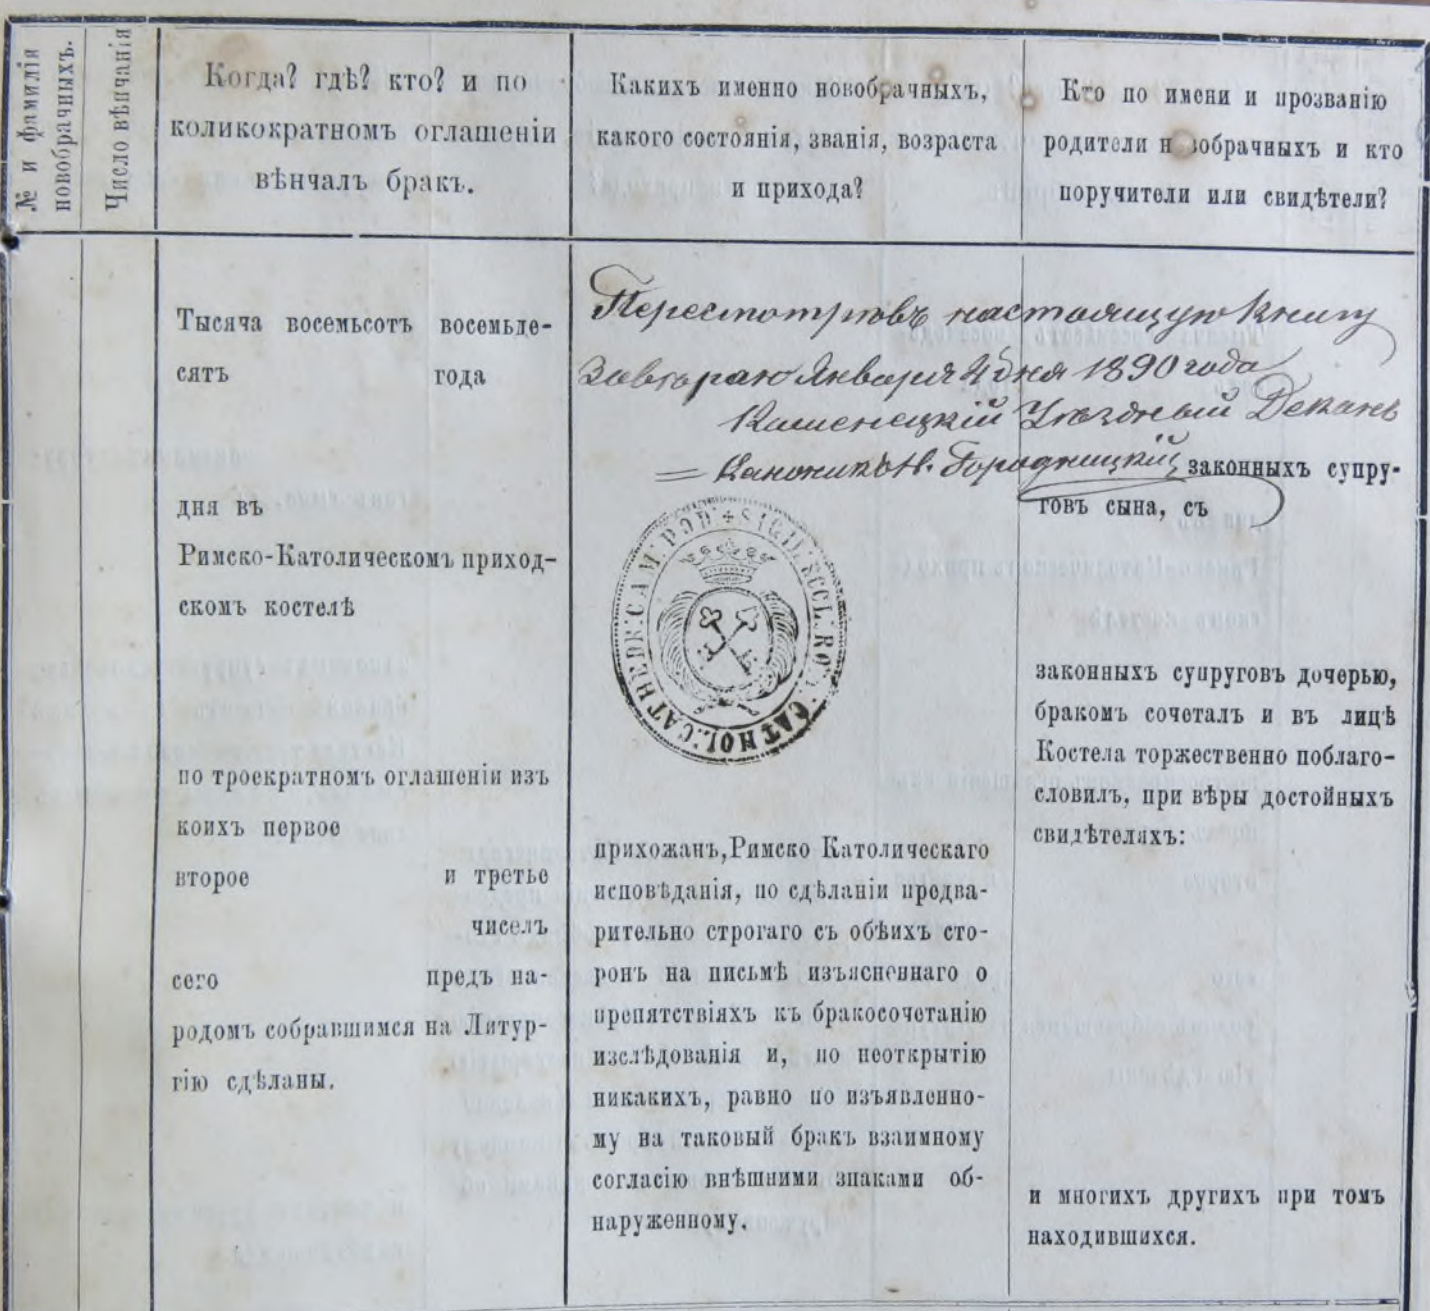 № и фамилія
новобрачныхъ.
Число вѣнчанія
Когда? гдѣ? кто? и по
коликократномъ оглашеніи
вѣнчалъ бракъ.
Какихъ именно новобрачныхъ,
какого состоянія, званія, возраста
и прихода?
Кто по имени и прозванію
родители н вобрачныхъ и кто
поручители или свидѣтели?
Тысяча восемьсотъ восемьде-
сятъ года
дня въ
Римско-Католическомъ приход-
скомъ костелѣ
по троекратномъ оглашеніи изъ
коихъ первое
второе и третье
чиселъ
сего предъ на-
родомъ собравшимся на Литур-
гію сдѣланы.
Пересмотрѣвъ настоящую Книгу
Января 4 дня 1890 года
Каменецкій Уѣздный Деканъ
Каноникъ Н. Городницкій
SIGIL. ECCL. ROM. CATHOL. CATHEDR. CAM. POD.
прихожанъ, Римско Католическаго
исповѣданія, по сдѣланіи предва-
рительно строгаго съ обѣихъ сто-
ронъ на письмѣ изъясненнаго о
препятствіяхъ къ бракосочетанію
изслѣдованія и, по неоткрытію
никакихъ, равно по изъявленно-
му на таковый бракъ взаимному
согласію внѣшними знаками об-
наруженному.
законныхъ супру-
говъ сына, съ
законныхъ супруговъ дочерью,
бракомъ сочеталъ и въ лицѣ
Костела торжественно поблаго-
словилъ, при вѣры достойныхъ
свидѣтеляхъ:
и многихъ другихъ при томъ
находившихся.